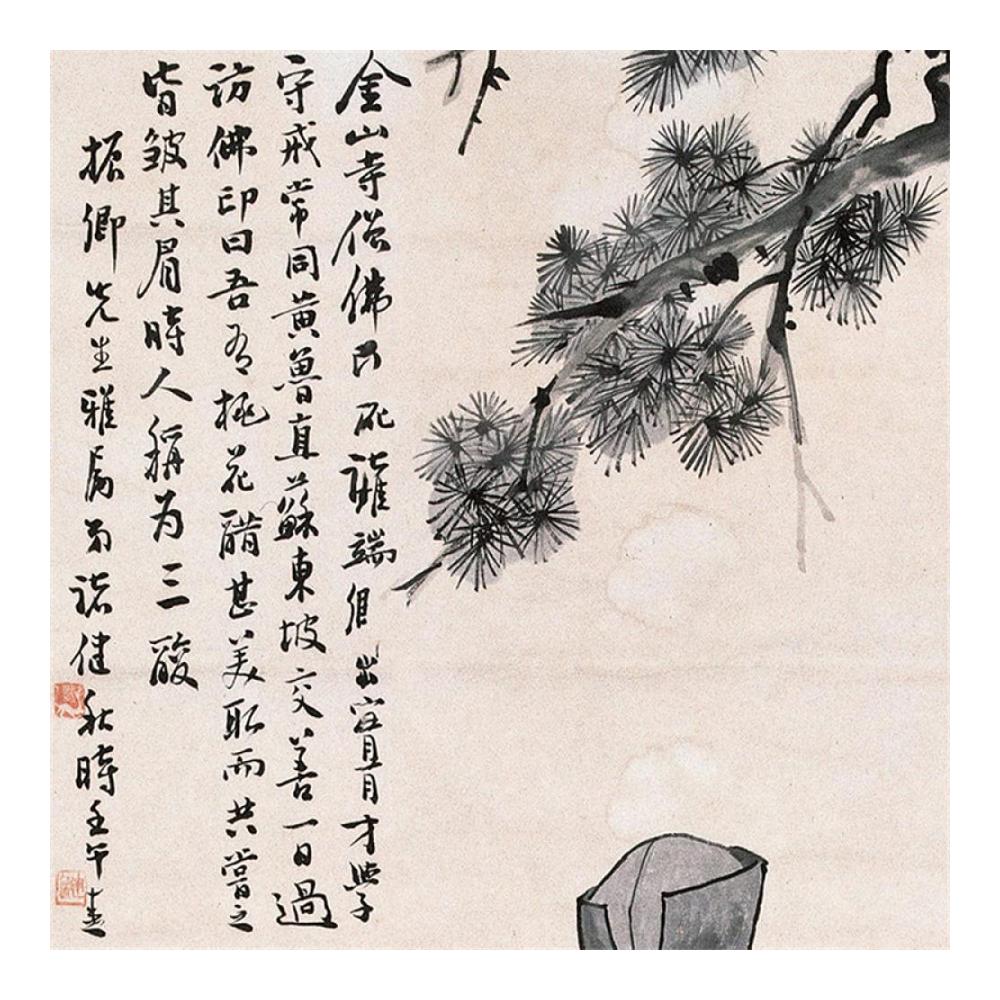 金山寺僧佛印端出才學
守戒常同黄魯直蘇東坡交善一日過
訪佛印曰吾有桃花醋甚美取而共嘗之
皆皺其眉時人稱为三酸
振卿先生雅属弟諸健秋時壬午春